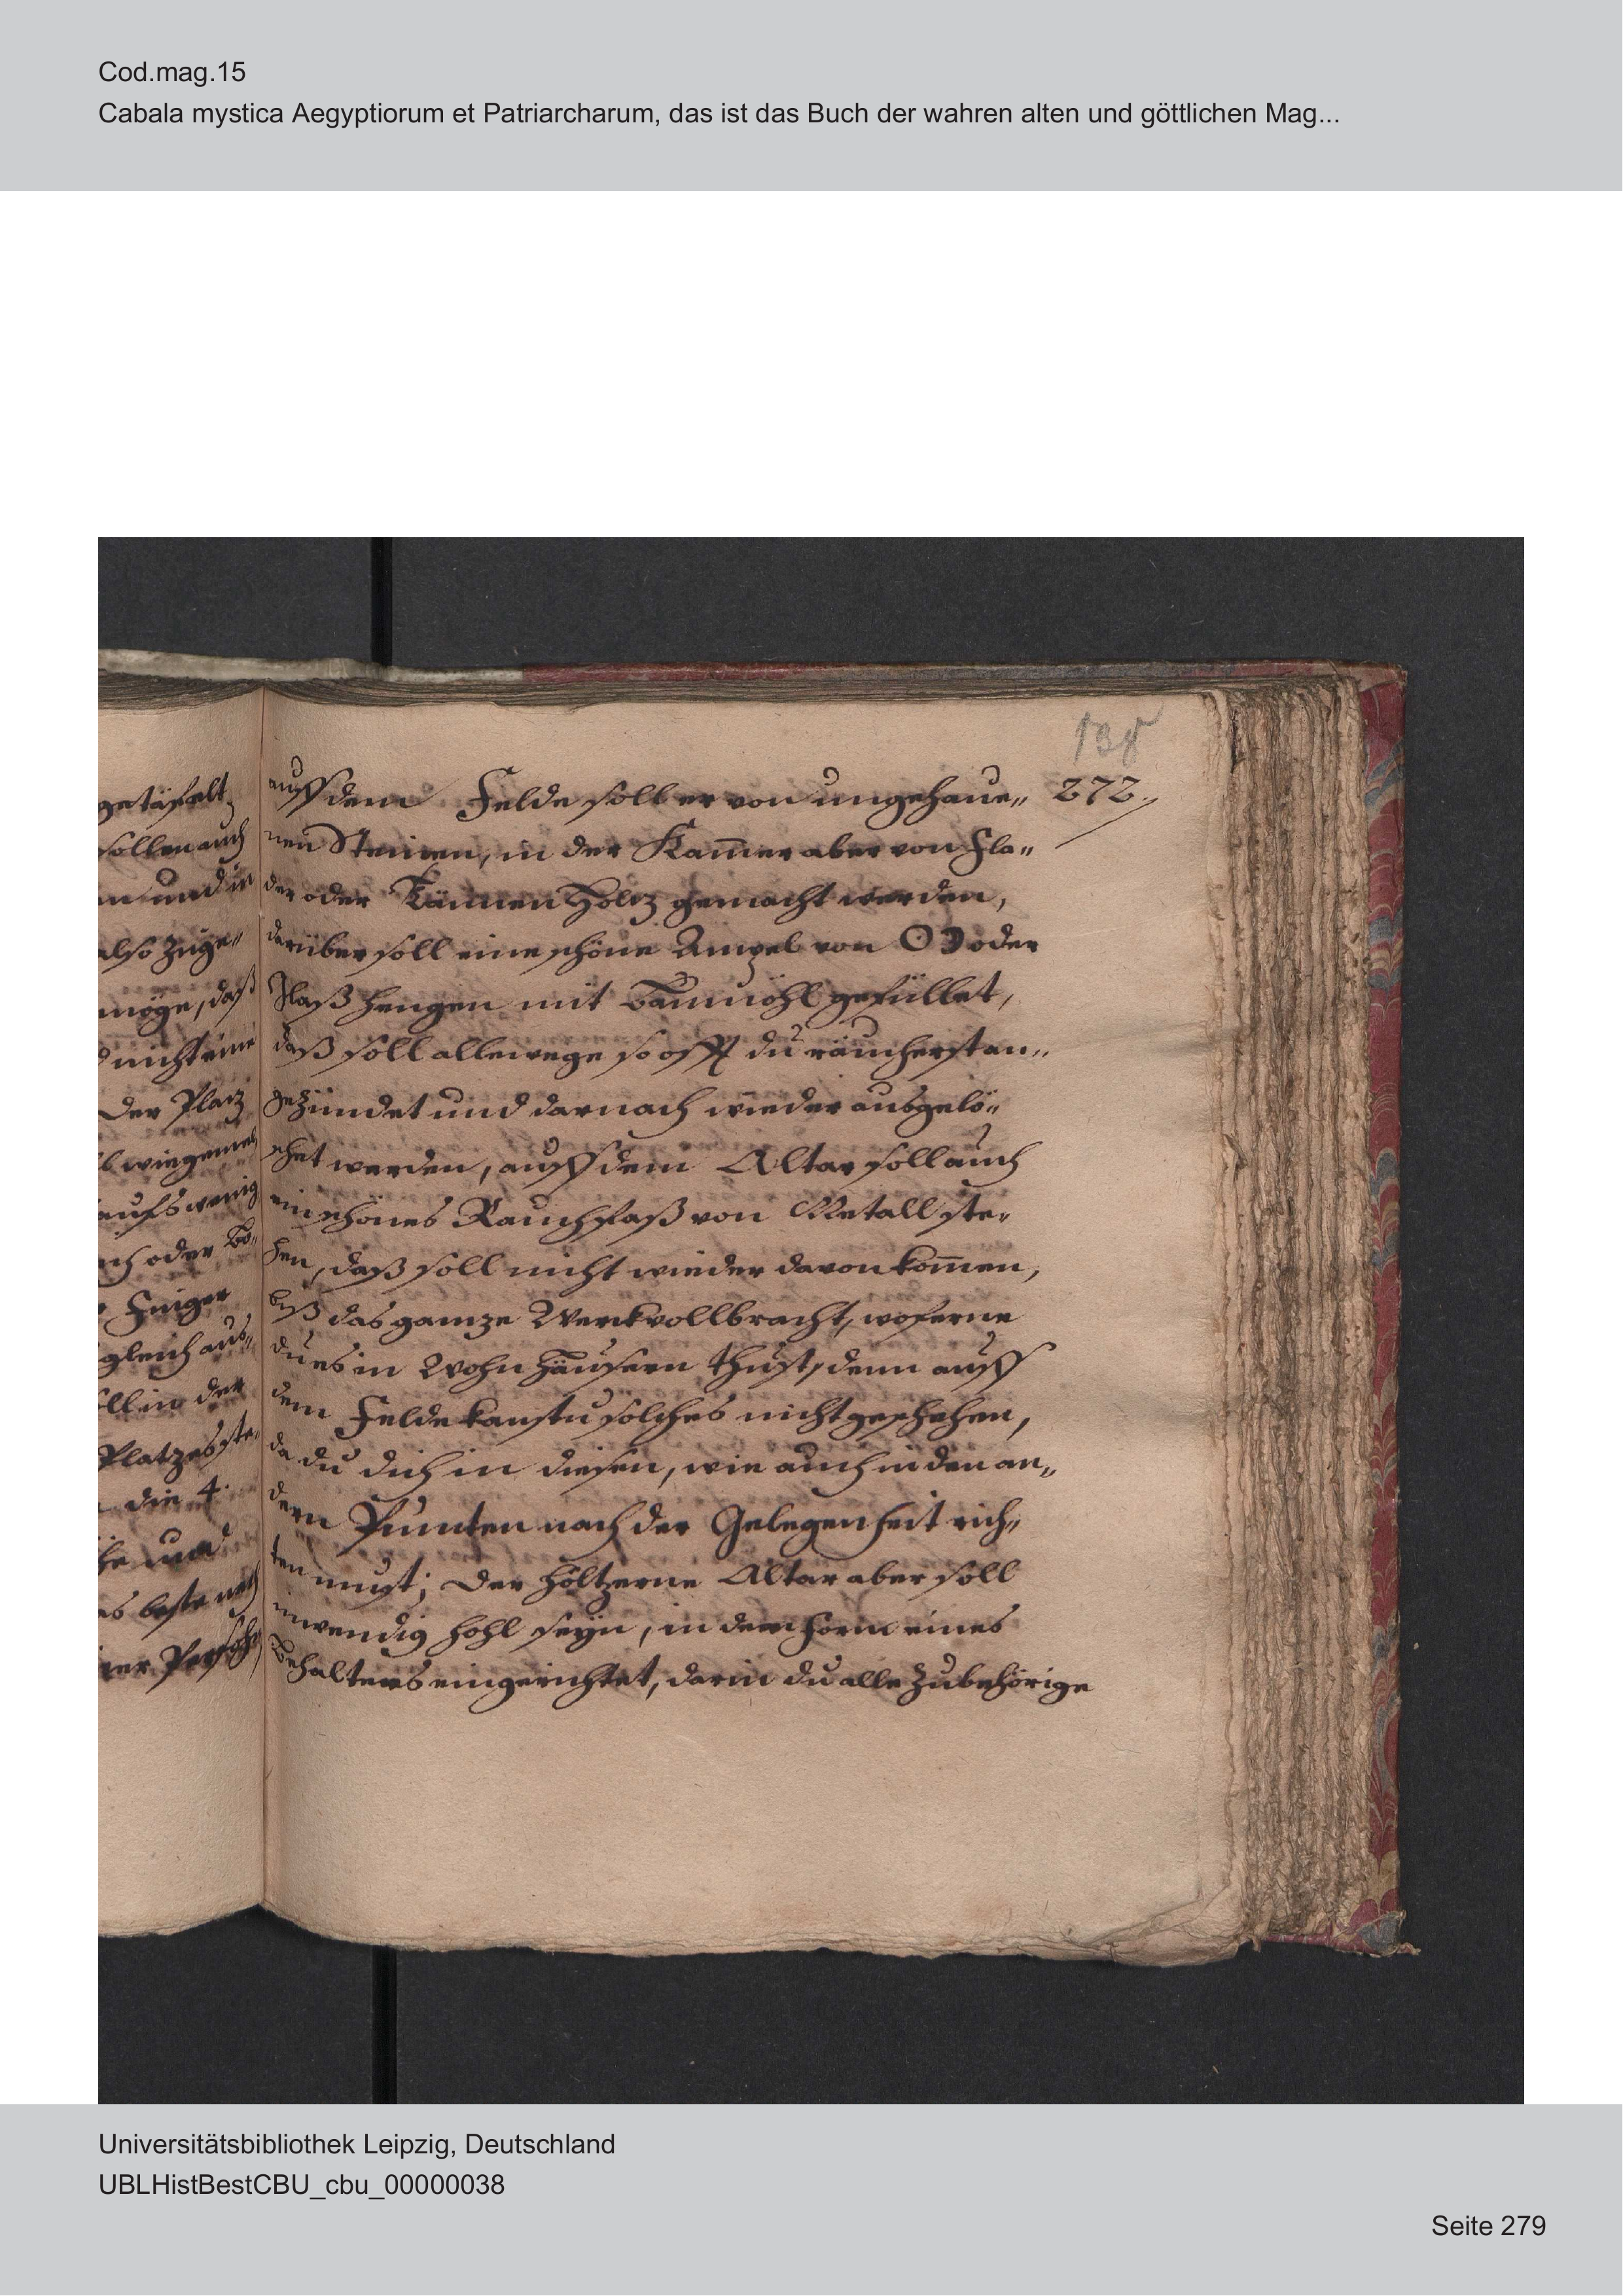 Cod.mag.15
Cabala mystica Aegyptiorum et Patriarcharum, das ist das Buch der wahren alten und göttlichen Mag...
138
272.
getäfelt
sollen auch
und in
also zuge„
möge, daß
nicht eine
Der Platz
wie gemel
aufs wenig
ich oder Bo„
Finger
gleich aus„
soll in der
Platzes ste„
die 4.
und
das beste nach
Persohn
auff dem Felde soll er von ungehaue„
nen Steinen, in der Kam̅er aber von Fla„
der oder Tännen Holtz gemacht werden,
darüber soll eine schöne Ampel von ☉ ☽ oder
Glaß hengen mit Baumöhl gefüllet,
daß soll allewege so offt du räucherst an„
gezündet und darnach wieder ausgelö„
schet werden, auff dem Altar soll auch
ein schönes Rauchfaß von Metall ste„
hen, daß soll nicht wieder davon kom̅en,
biß das gantze Werk vollbracht, woferne
du es in Wohn Häusern thust, denn auff
dem Felde kanstu solches nicht geschehen,
da du dich in diesen, wie auch in den an„
dern Puncten nach der Gelegenheit rich„
ten must; Der höltzerne Altar aber soll
inwendig hohl seyn, in dem form eines
Behalters eingerichtet, darin du alle Zubehörige
Universitätsbibliothek Leipzig, Deutschland
UBLHistBestCBU_cbu_00000038
Seite 279